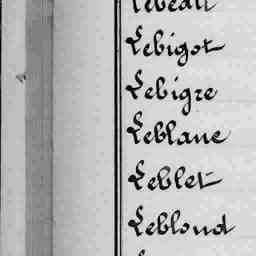 Lebeau
Lebigot
Lebigre
Leblanc
Leblet
Leblond